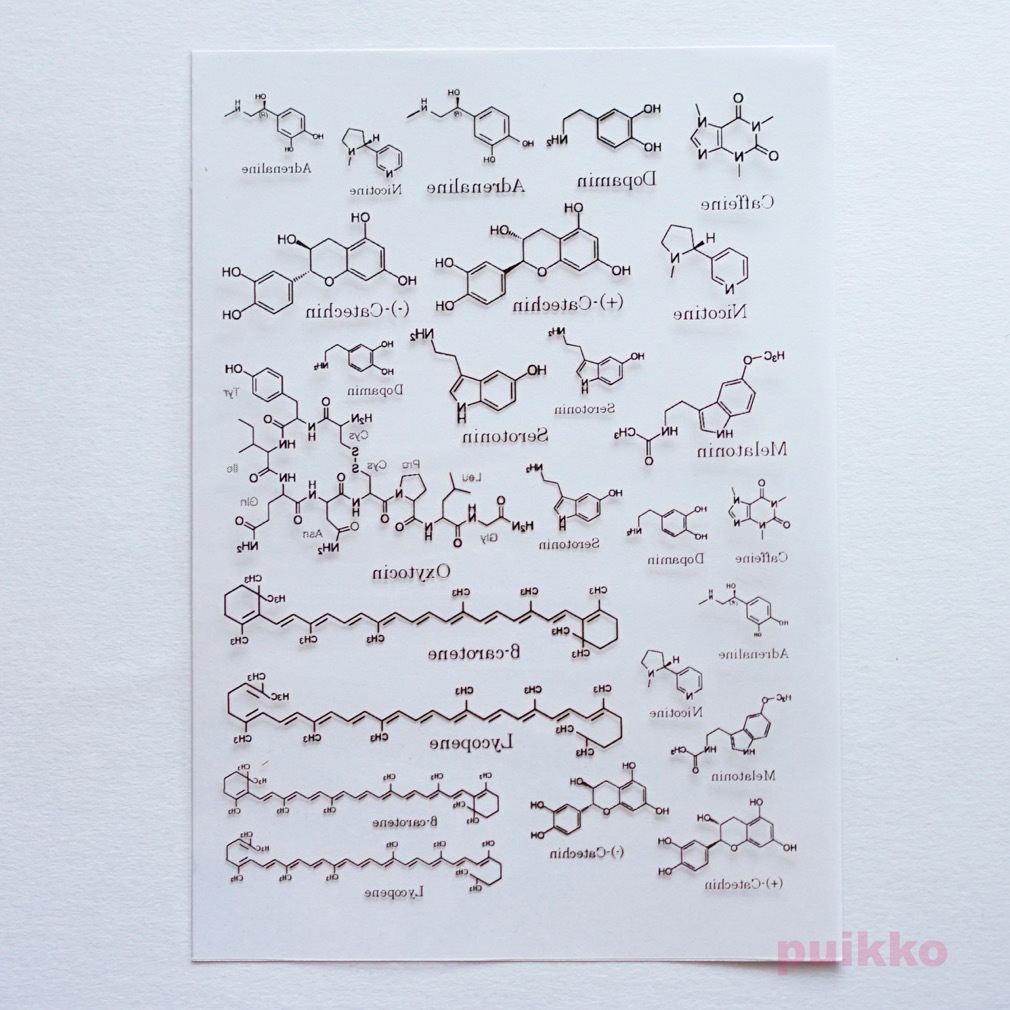 Adrenaline
Nicotine
Adrenaline
Dopamin
Caffeine
(-)-Catechin
(+)-Catechin
Nicotine
Dopamin
Serotonin
Serotonin
Melatonin
Tyr
Ile
Gln
Asn
Cys
Cys
Pro
Leu
Gly
Oxytocin
Serotonin
Dopamin
Caffeine
β-carotene
Adrenaline
Lycopene
Nicotine
Melatonin
β-carotene
(-)-Catechin
Lycopene
(+)-Catechin
puikko